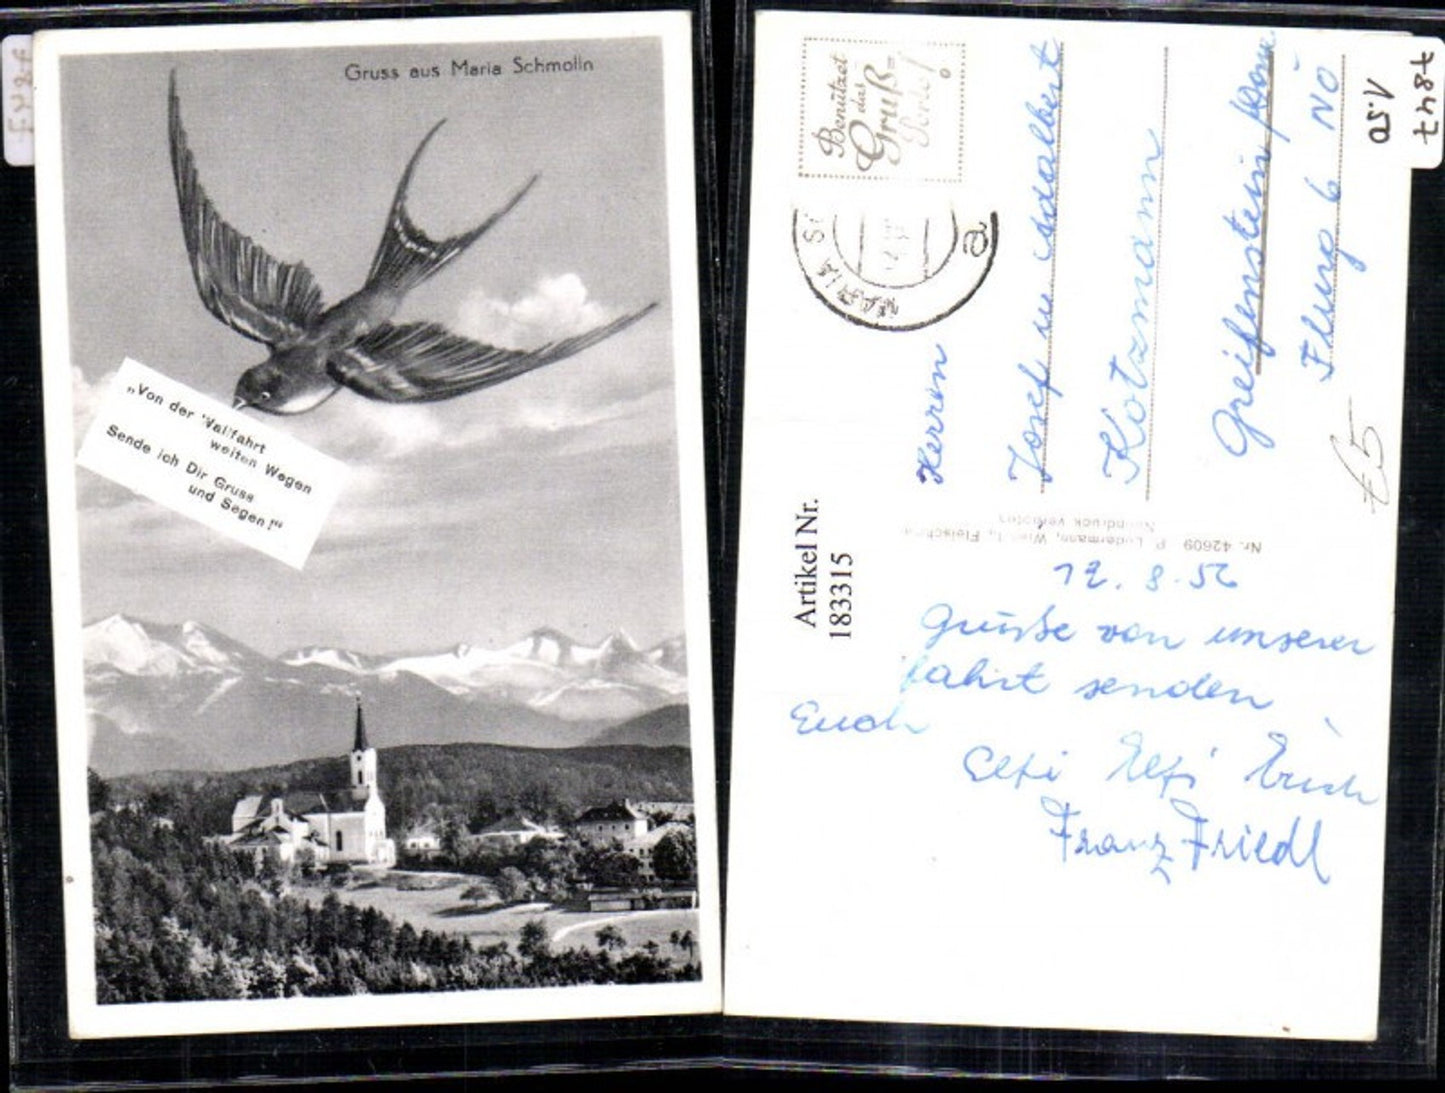 Gruss aus Maria Schmolln
„Von der Wallfahrt
weiten Wegen
Sende ich Dir Gruss
und Segen!“
7847
1.50
Benützet
das
Gruß=
MARIA S
a
Herrn
Josef u Adalbert
Kotzmann
Greifenstein
6 NÖ
£5
Artikel Nr.
183315
Nr. 42609 P. Ledermann, Wien I., Fleischm
Nachdruck verboten
12. 8. 56
Grüße von unserer
fahrt senden
Euch
Elfi Erich
Franz Friedl